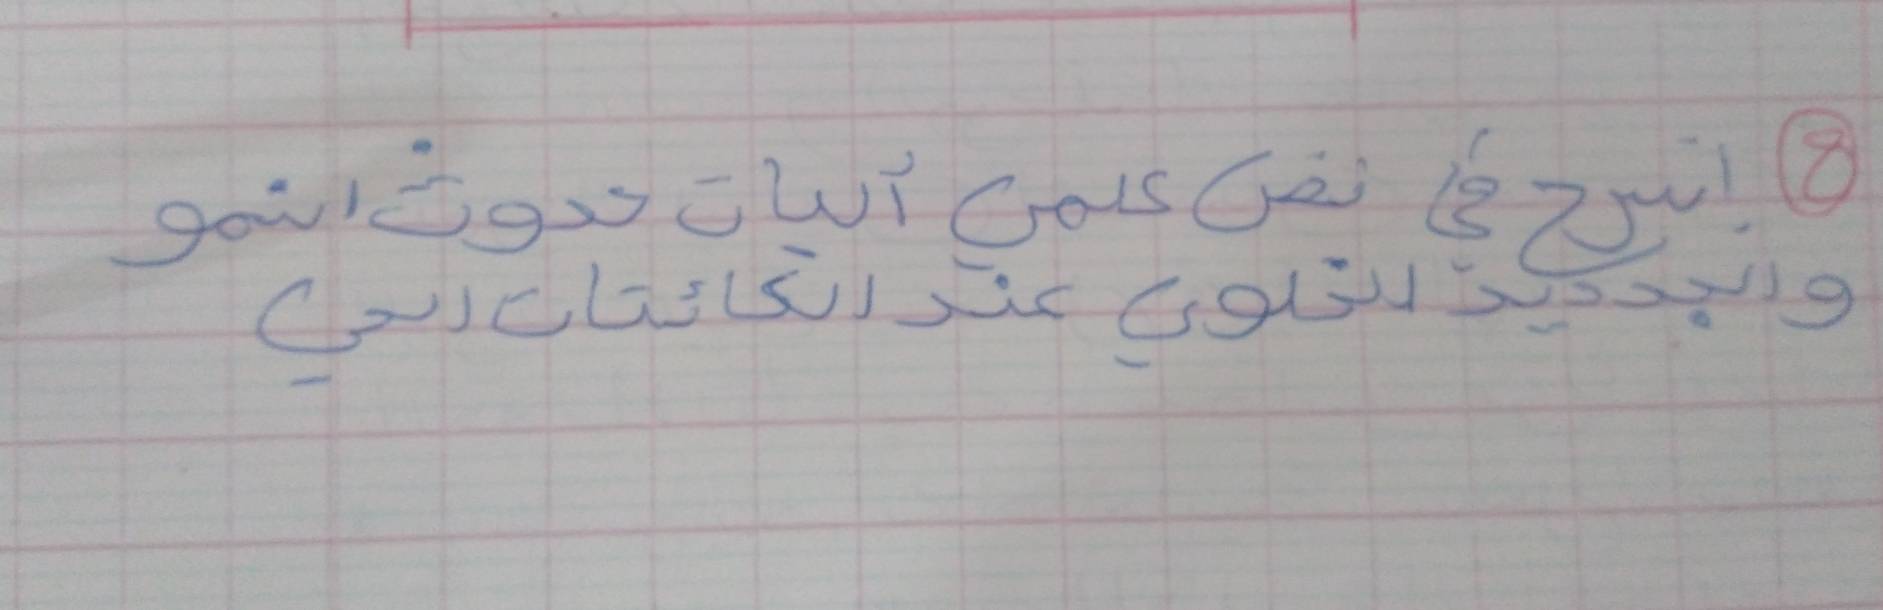 ⑧ إشرح في نص كلمن آليات حدوث النمو
والتجديد الخلوي عند الكائنات الحي